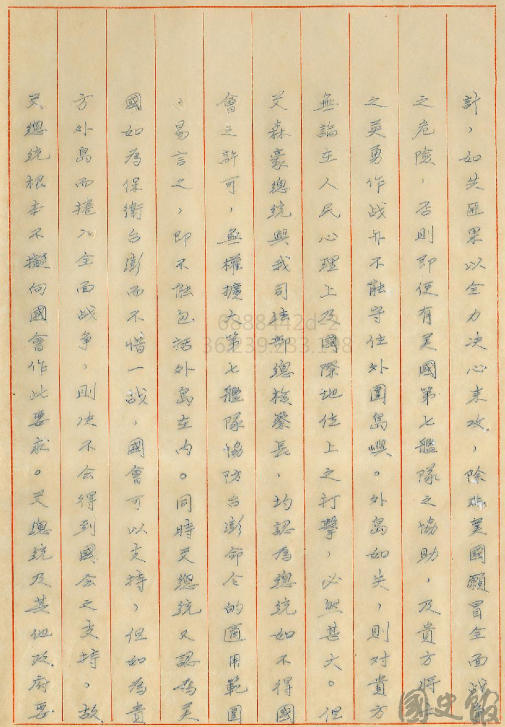 計，如共匪果以全力決心來攻，除非美國願冒全面战爭
之危險，否則即使有美國第七艦隊之協助，及貴方將士
之英勇作战亦不能守住外圍島嶼。外島如失，則對貴方
無論在人民心理上及國際地位上之打擊，必然甚大。但
艾森豪總統與我司法部總檢察長，均認為總統如不得國
會之許可，無權擴大第七艦隊協防台澎命令的適用範圍
，易言之，即不能包括外島在內。同時艾總統又認為美
國如為保衛台澎而不惜一战，國會可以支持，但如為貴
方外島而捲入全面战争，則决不会得到國会之支持。故
艾總統根本不擬向國會作此要求。艾總統及其他政府要
6888442d-2
36.239.233.198
國史館